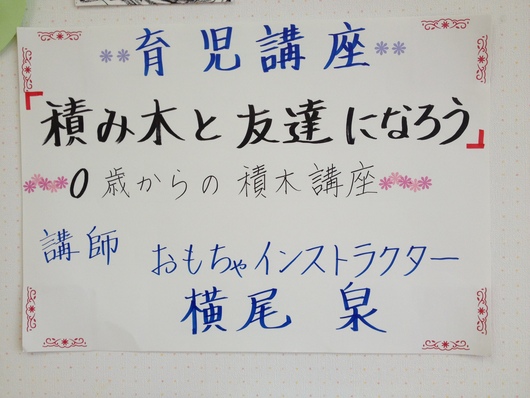 育児講座
「積み木と友達になろう」
0歳からの積木講座
講師 おもちゃインストラクター
横尾 泉